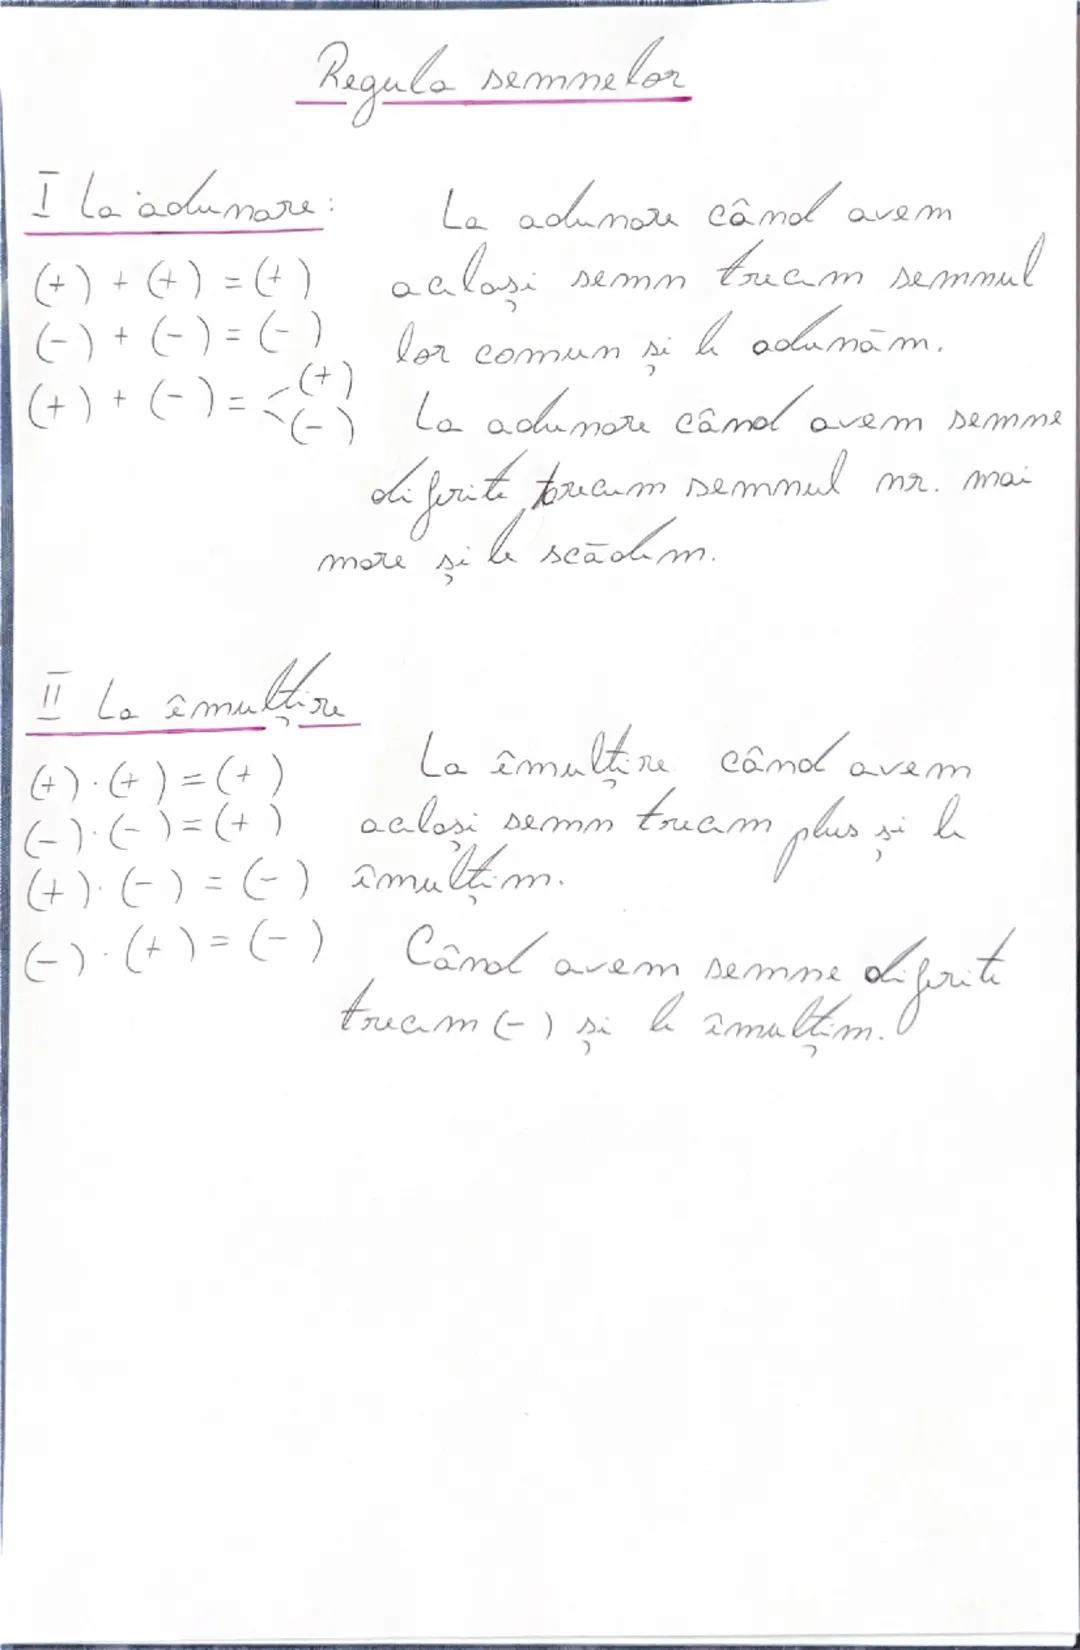 Regula semnelor
I La adunare:
La adunare când avem
(+) + (+) = (+)
același semn trecem semnul
(-) + (-) = (-)
lor comun și le adunăm.
(+) + (-) = < (+)
(-)
La adunare când avem semne
diferite trecem semnul nr. mai
mare și le scădem.
II La înmulțire
La înmulțire când avem
(+) · (+) = (+)
același semn trecem plus și le
(-) · (-) = (+)
înmulțim.
(+) · (-) = (-)
(-) · (+) = (-)
Când avem semne diferite
trecem (-) și le înmulțim.